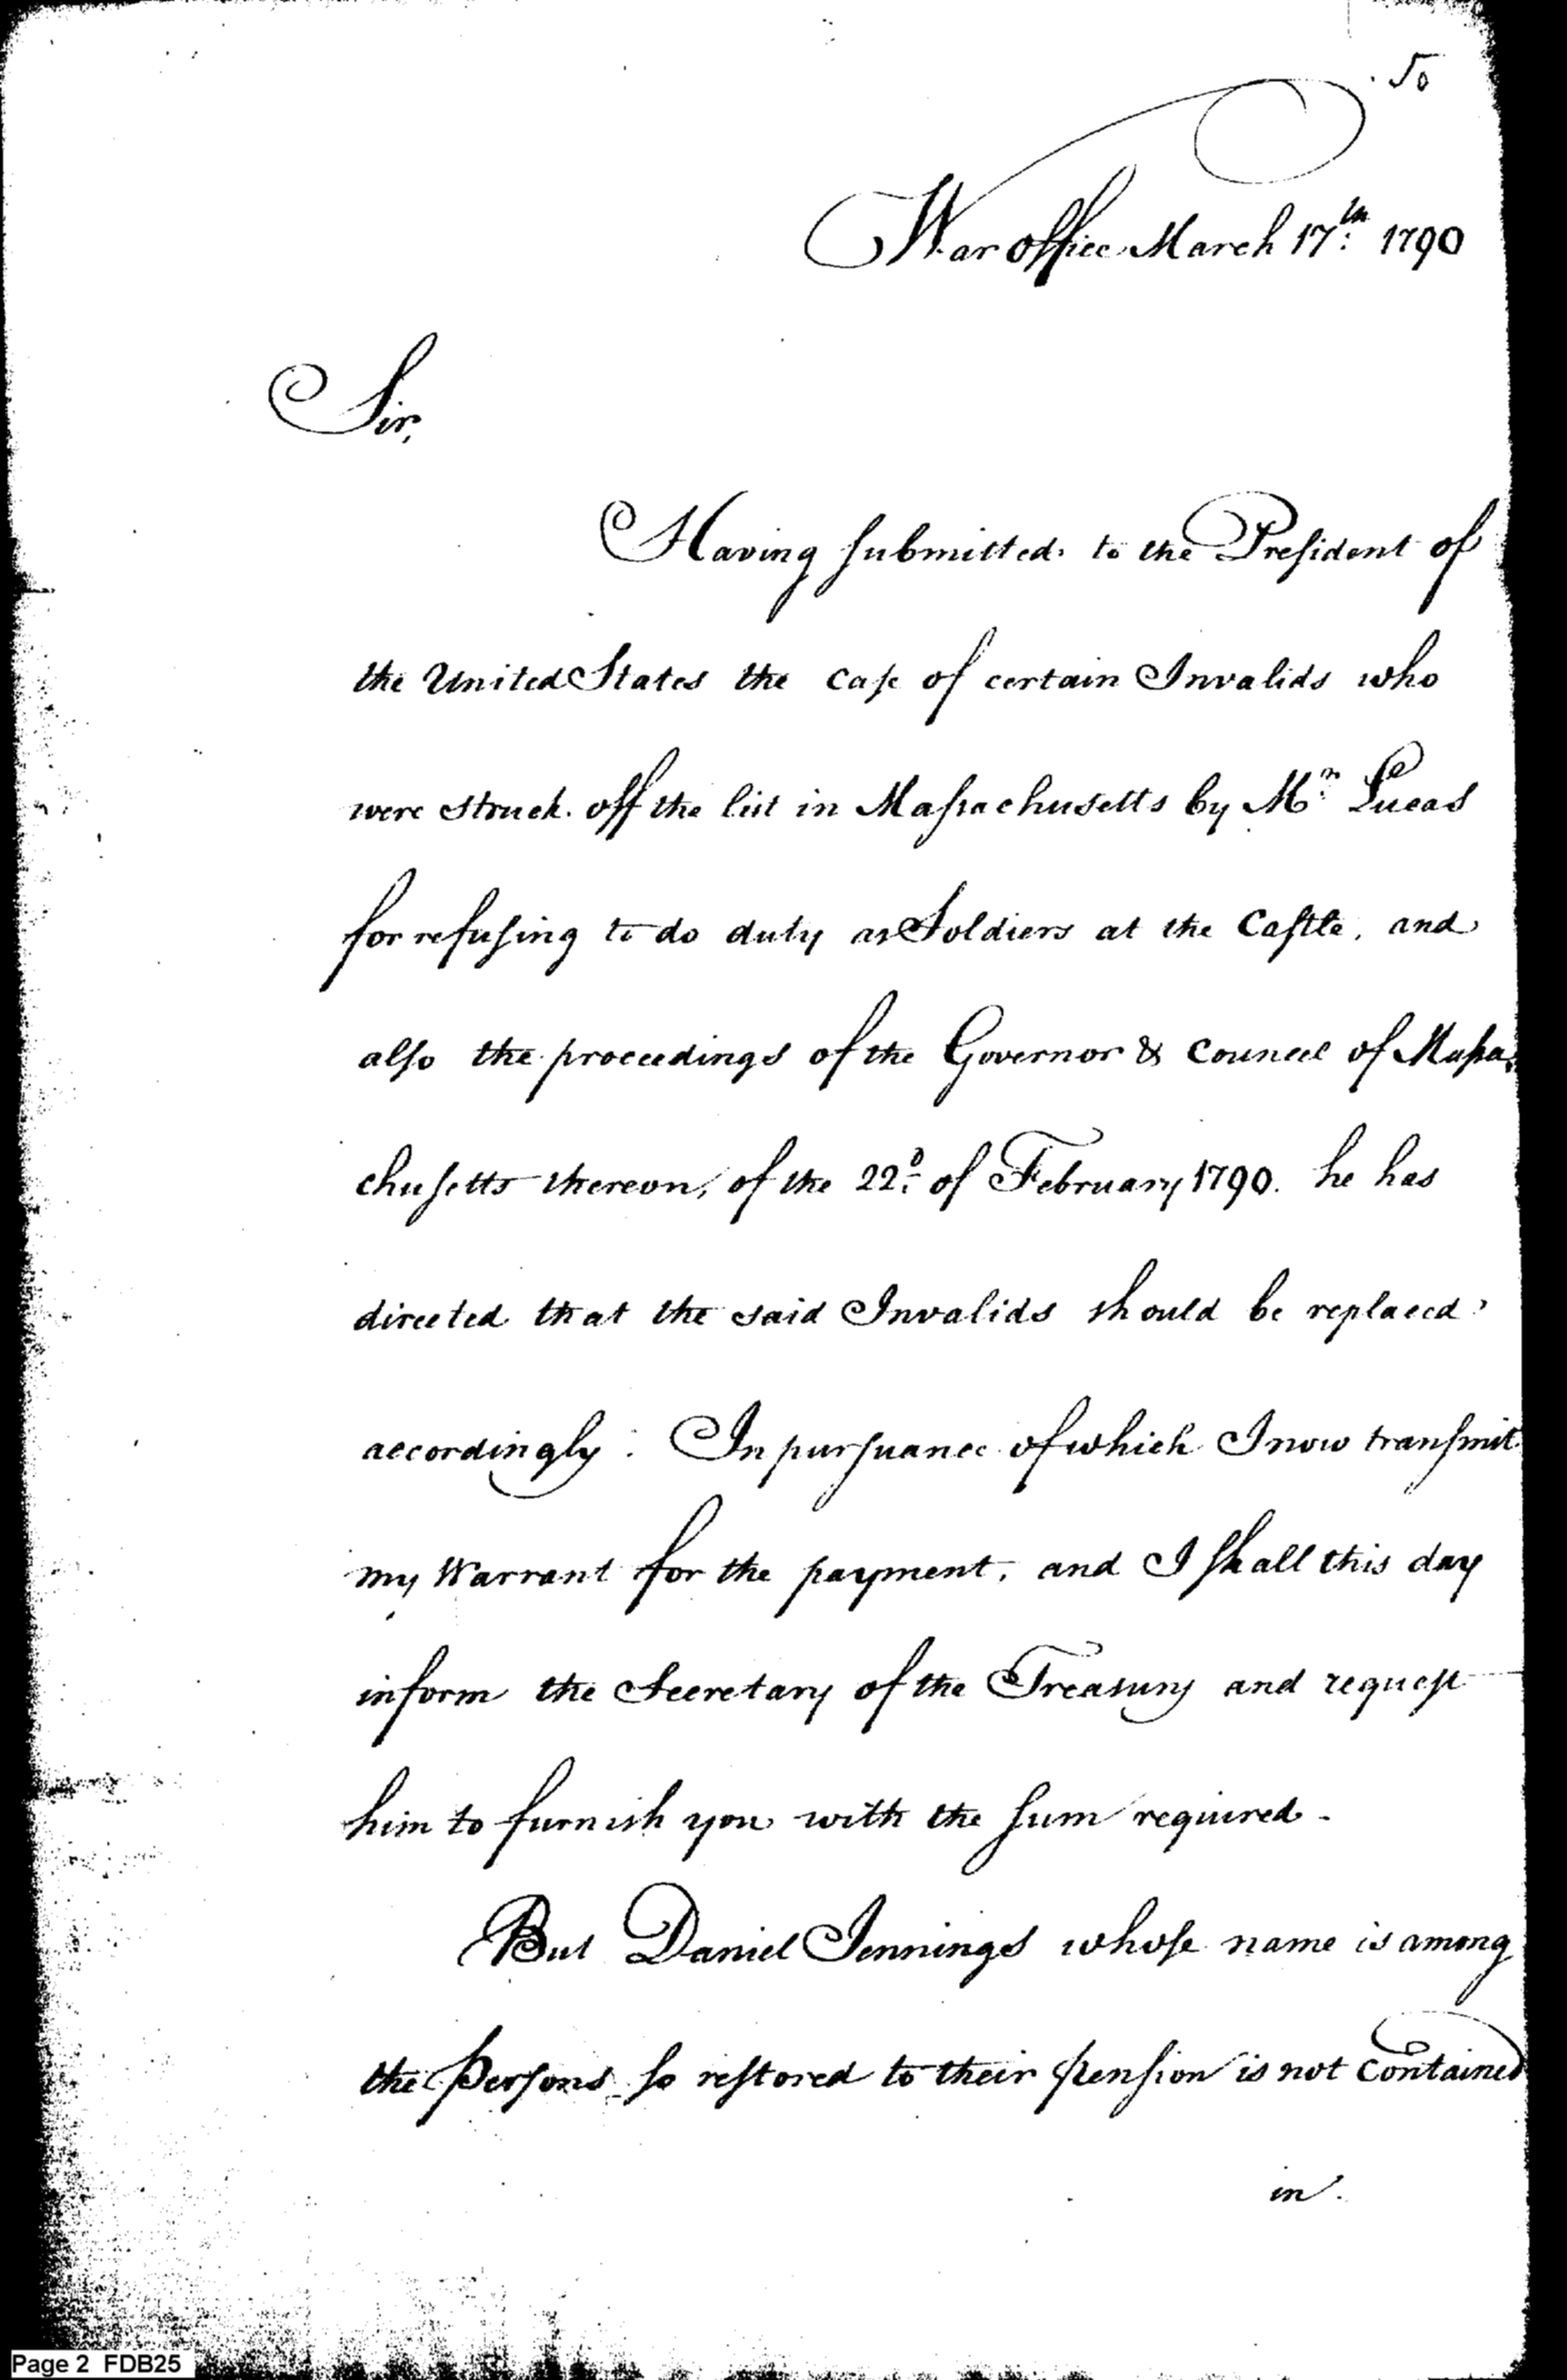 50
War office March 17th 1790
Sir,
Having submitted to the President of
the United States the case of certain Invalids who
were struck off the list in Massachusetts by Mr. Lucas
for refusing to do duty as Soldiers at the Castle, and
also the proceedings of the Governor & Council of Massa,
chusetts thereon, of the 22d. of February 1790. he has
directed that the said Invalids should be replaced
accordingly: In pursuance of which I now transmit
my Warrant for the payment, and I shall this day
inform the Secretary of the Treasury and request
him to furnish you with the sum required -
But Daniel Jennings whose name is among
the Persons so restored to their pension is not contained
in
Page 2 FDB25